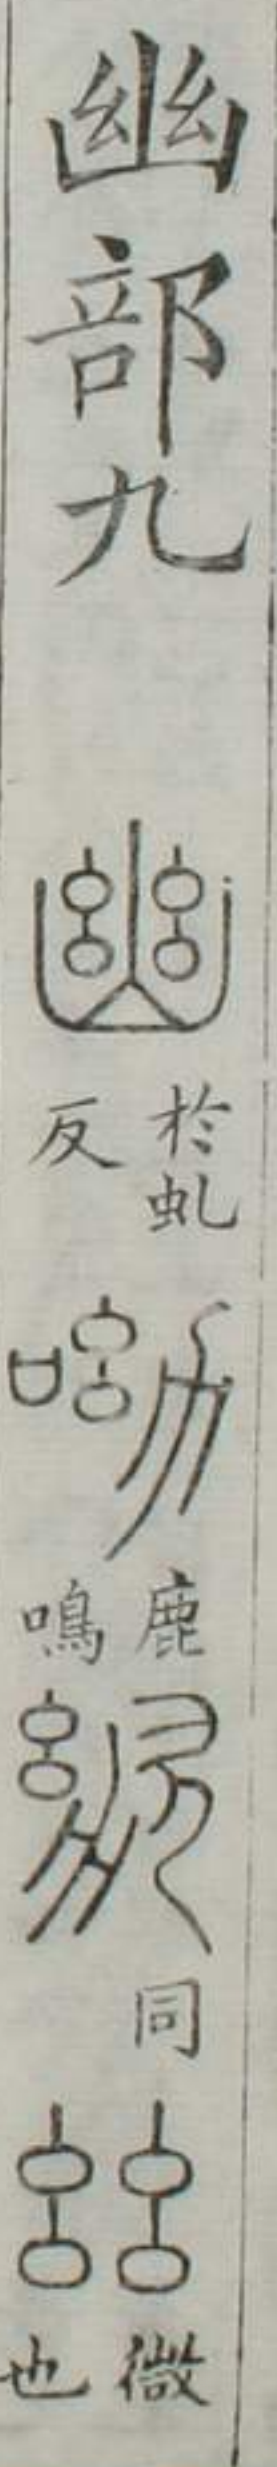 幽部九 幽 於虬反 呦 鹿鳴 𣢜 同 𢆶 微也